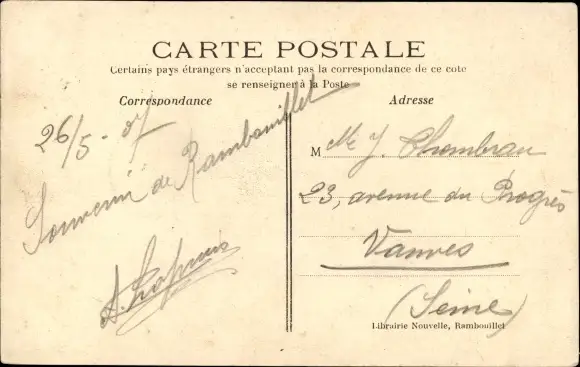 CARTE POSTALE
Certains pays étrangers n'acceptant pas la correspondance de ce coté
se renseigner à la Poste
Correspondance
26/5-07
Souvenir de Rambouillet
Adresse
M lle J.
23, avenue du Progrès
Vanves
(Seine)
Librairie Nouvelle, Rambouillet